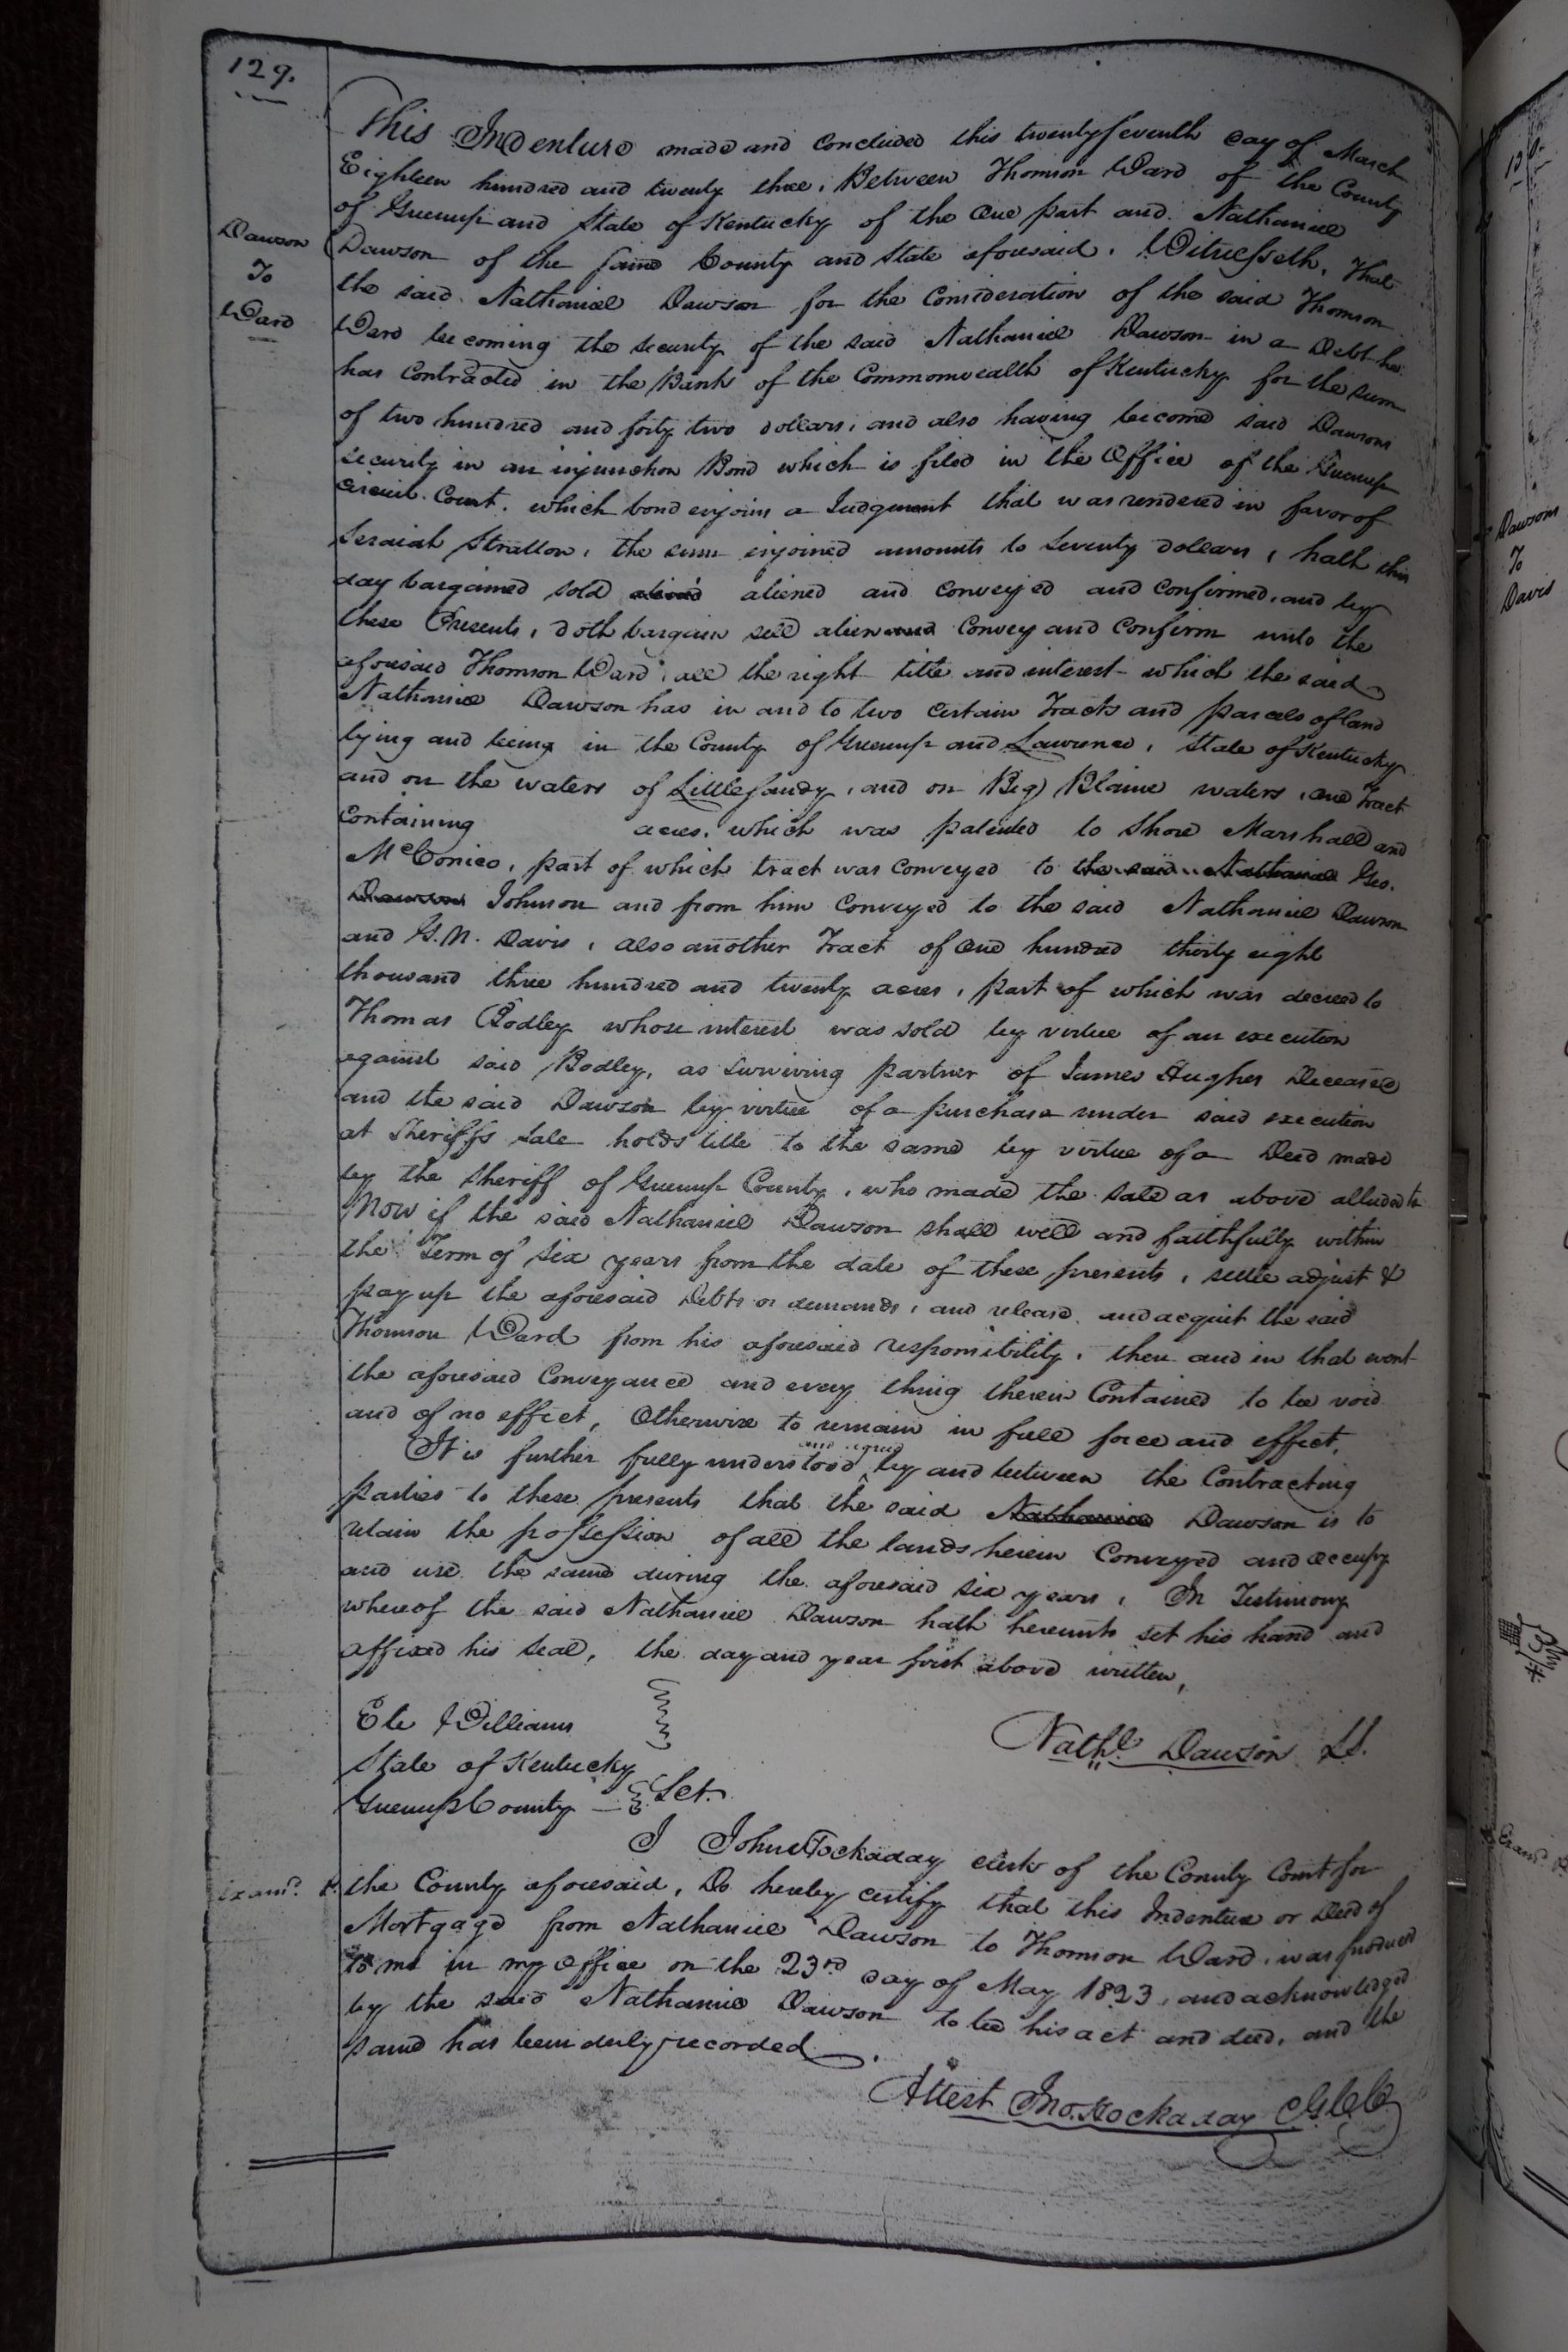 129.
Dawson
To
Ward
This Indenture made and concluded this twenty seventh day of March
Eighteen hundred and twenty three, Between Thomson Ward of the County
of Greenup and State of Kentucky of the One part and Nathaniel
Dawson of the same County and State aforesaid. Witnesseth, That
the said Nathaniel Dawson for the Consideration of the said Thomson
Ward becoming the security of the said Nathaniel Dawson in a Debt he
has Contracted in the Bank of the Commonwealth of Kentucky for the sum
of two hundred and forty two dollars, and also having become said Dawsons
security in an injunction Bond which is filed in the Office of the Greenup
Circuit Court. which bond enjoins a Judgment that was rendered in favor of
Seraiah Stratton, the sum enjoined amounts to Seventy dollars, hath this
day bargained sold aliened and conveyed and confirmed, and by
these Presents, doth bargain sell alien and Convey and Confirm unto the
aforesaid Thomson Ward all the right title and interest which the said
Nathaniel Dawson has in and to two certain Tracts and parcels of land
lying and being in the County of Greenup and Lawrence, State of Kentucky
and on the waters of Little Sandy, and on Big Blaine waters, One Tract
Containing acres, which was patented to Shore Marshall and
McConico, part of which tract was Conveyed to the said Nathaniel Geo.
Dawson Johnson and from him Conveyed to the said Nathaniel Dawson
and G. N. Davis, also another Tract of One hundred thirty eight
thousand three hundred and twenty acres, part of which was decreed to
Thomas Bodley whose interest was sold by virtue of an execution
against said Bodley, as surviving partner of James Hughes Deceased
and the said Dawson by virtue of a purchase under said execution
at Sheriffs Sale holds title to the same by virtue of a Deed made
by the Sheriff of Greenup County, who made the sale as above alluded to
Now if the said Nathaniel Dawson shall well and faithfully within
the Term of six years from the date of these presents, settle adjust &
pay up the aforesaid Debts or demands, and release and acquit the said
Thomson Ward from his aforesaid responsibility, then and in that event
the aforesaid Conveyance and every thing therein Contained to be void
and of no effect, Otherwise to remain in full force and effect,
It is further fully understood and agreed by and between the Contracting
parties to these presents that the said Nathaniel Dawson is to
retain the possession of all the lands herein Conveyed and occupy
and use the same during the aforesaid six years, In Testimony
whereof the said Nathaniel Dawson hath hereunto set his hand and
affixed his seal, the day and year first above written,
Ele Williams
Nathl. Dawson LS.
State of Kentucky
Greenup County Sct.
I John Hockaday clerk of the County Court for
Examd. the County aforesaid, Do hereby certify that this Indenture or Deed of
Mortgage from Nathaniel Dawson to Thomson Ward, was produced
to me in my Office on the 23rd day of May 1823, and acknowledged
by the said Nathaniel Dawson to be his act and deed, and the
same has been duly recorded.
Attest Jno. Hockaday CGCC
Dawsons
To
Davis
Examd.